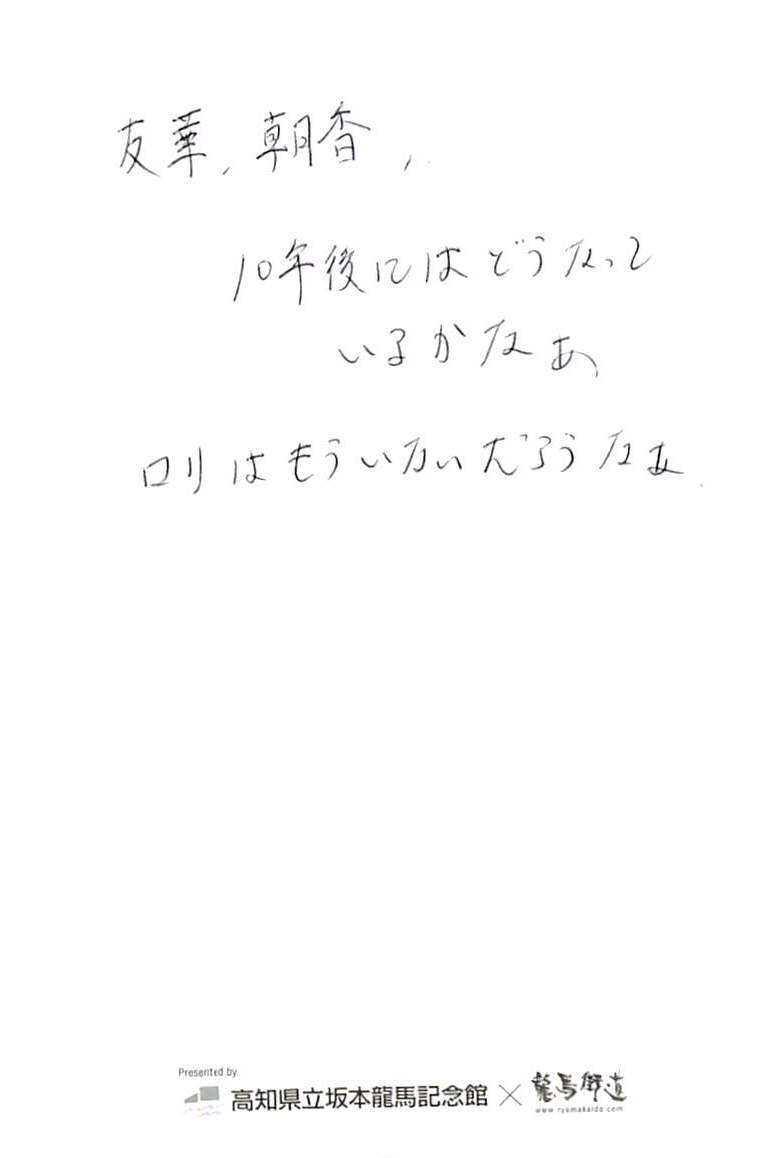 友華, 朝香,
10年後にはどうなって
いるかなあ
ロリはもういないだろうなぁ
Presented by
高知県立坂本龍馬記念館 × 龍馬街道
www.ryomakaido.com